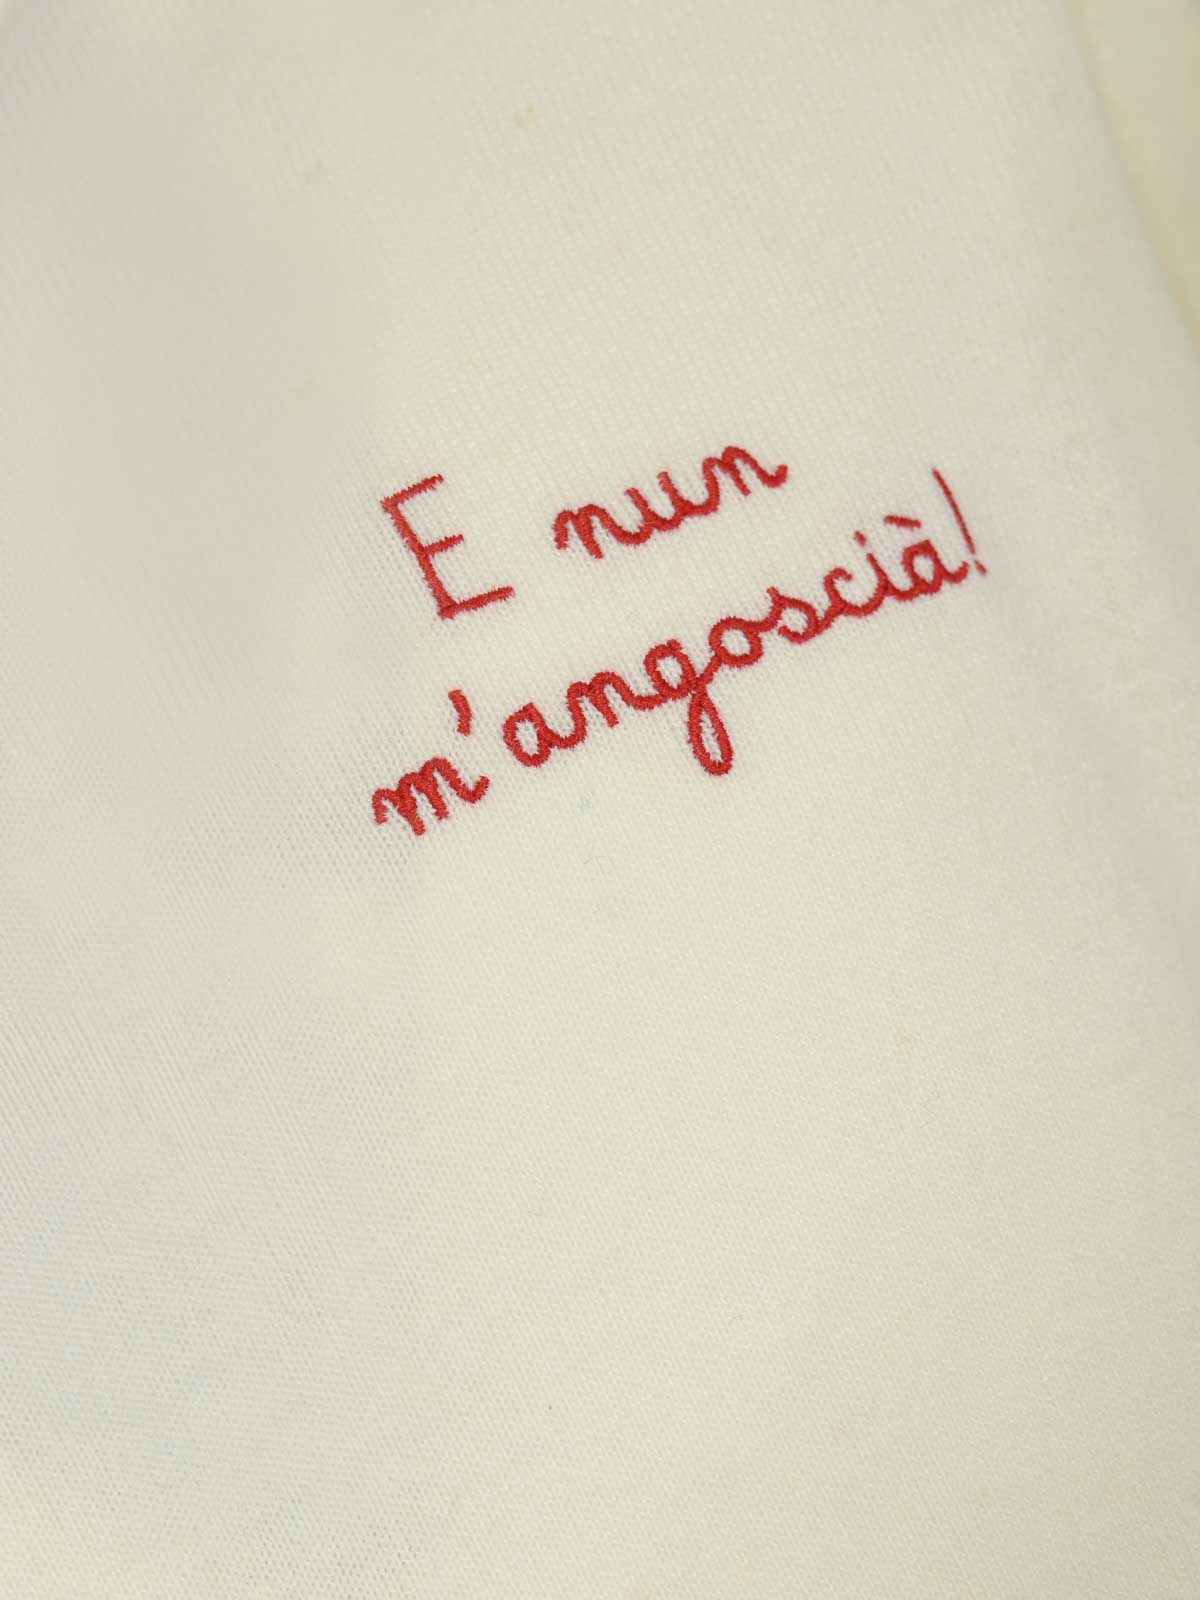 E nun
m'angoscià!